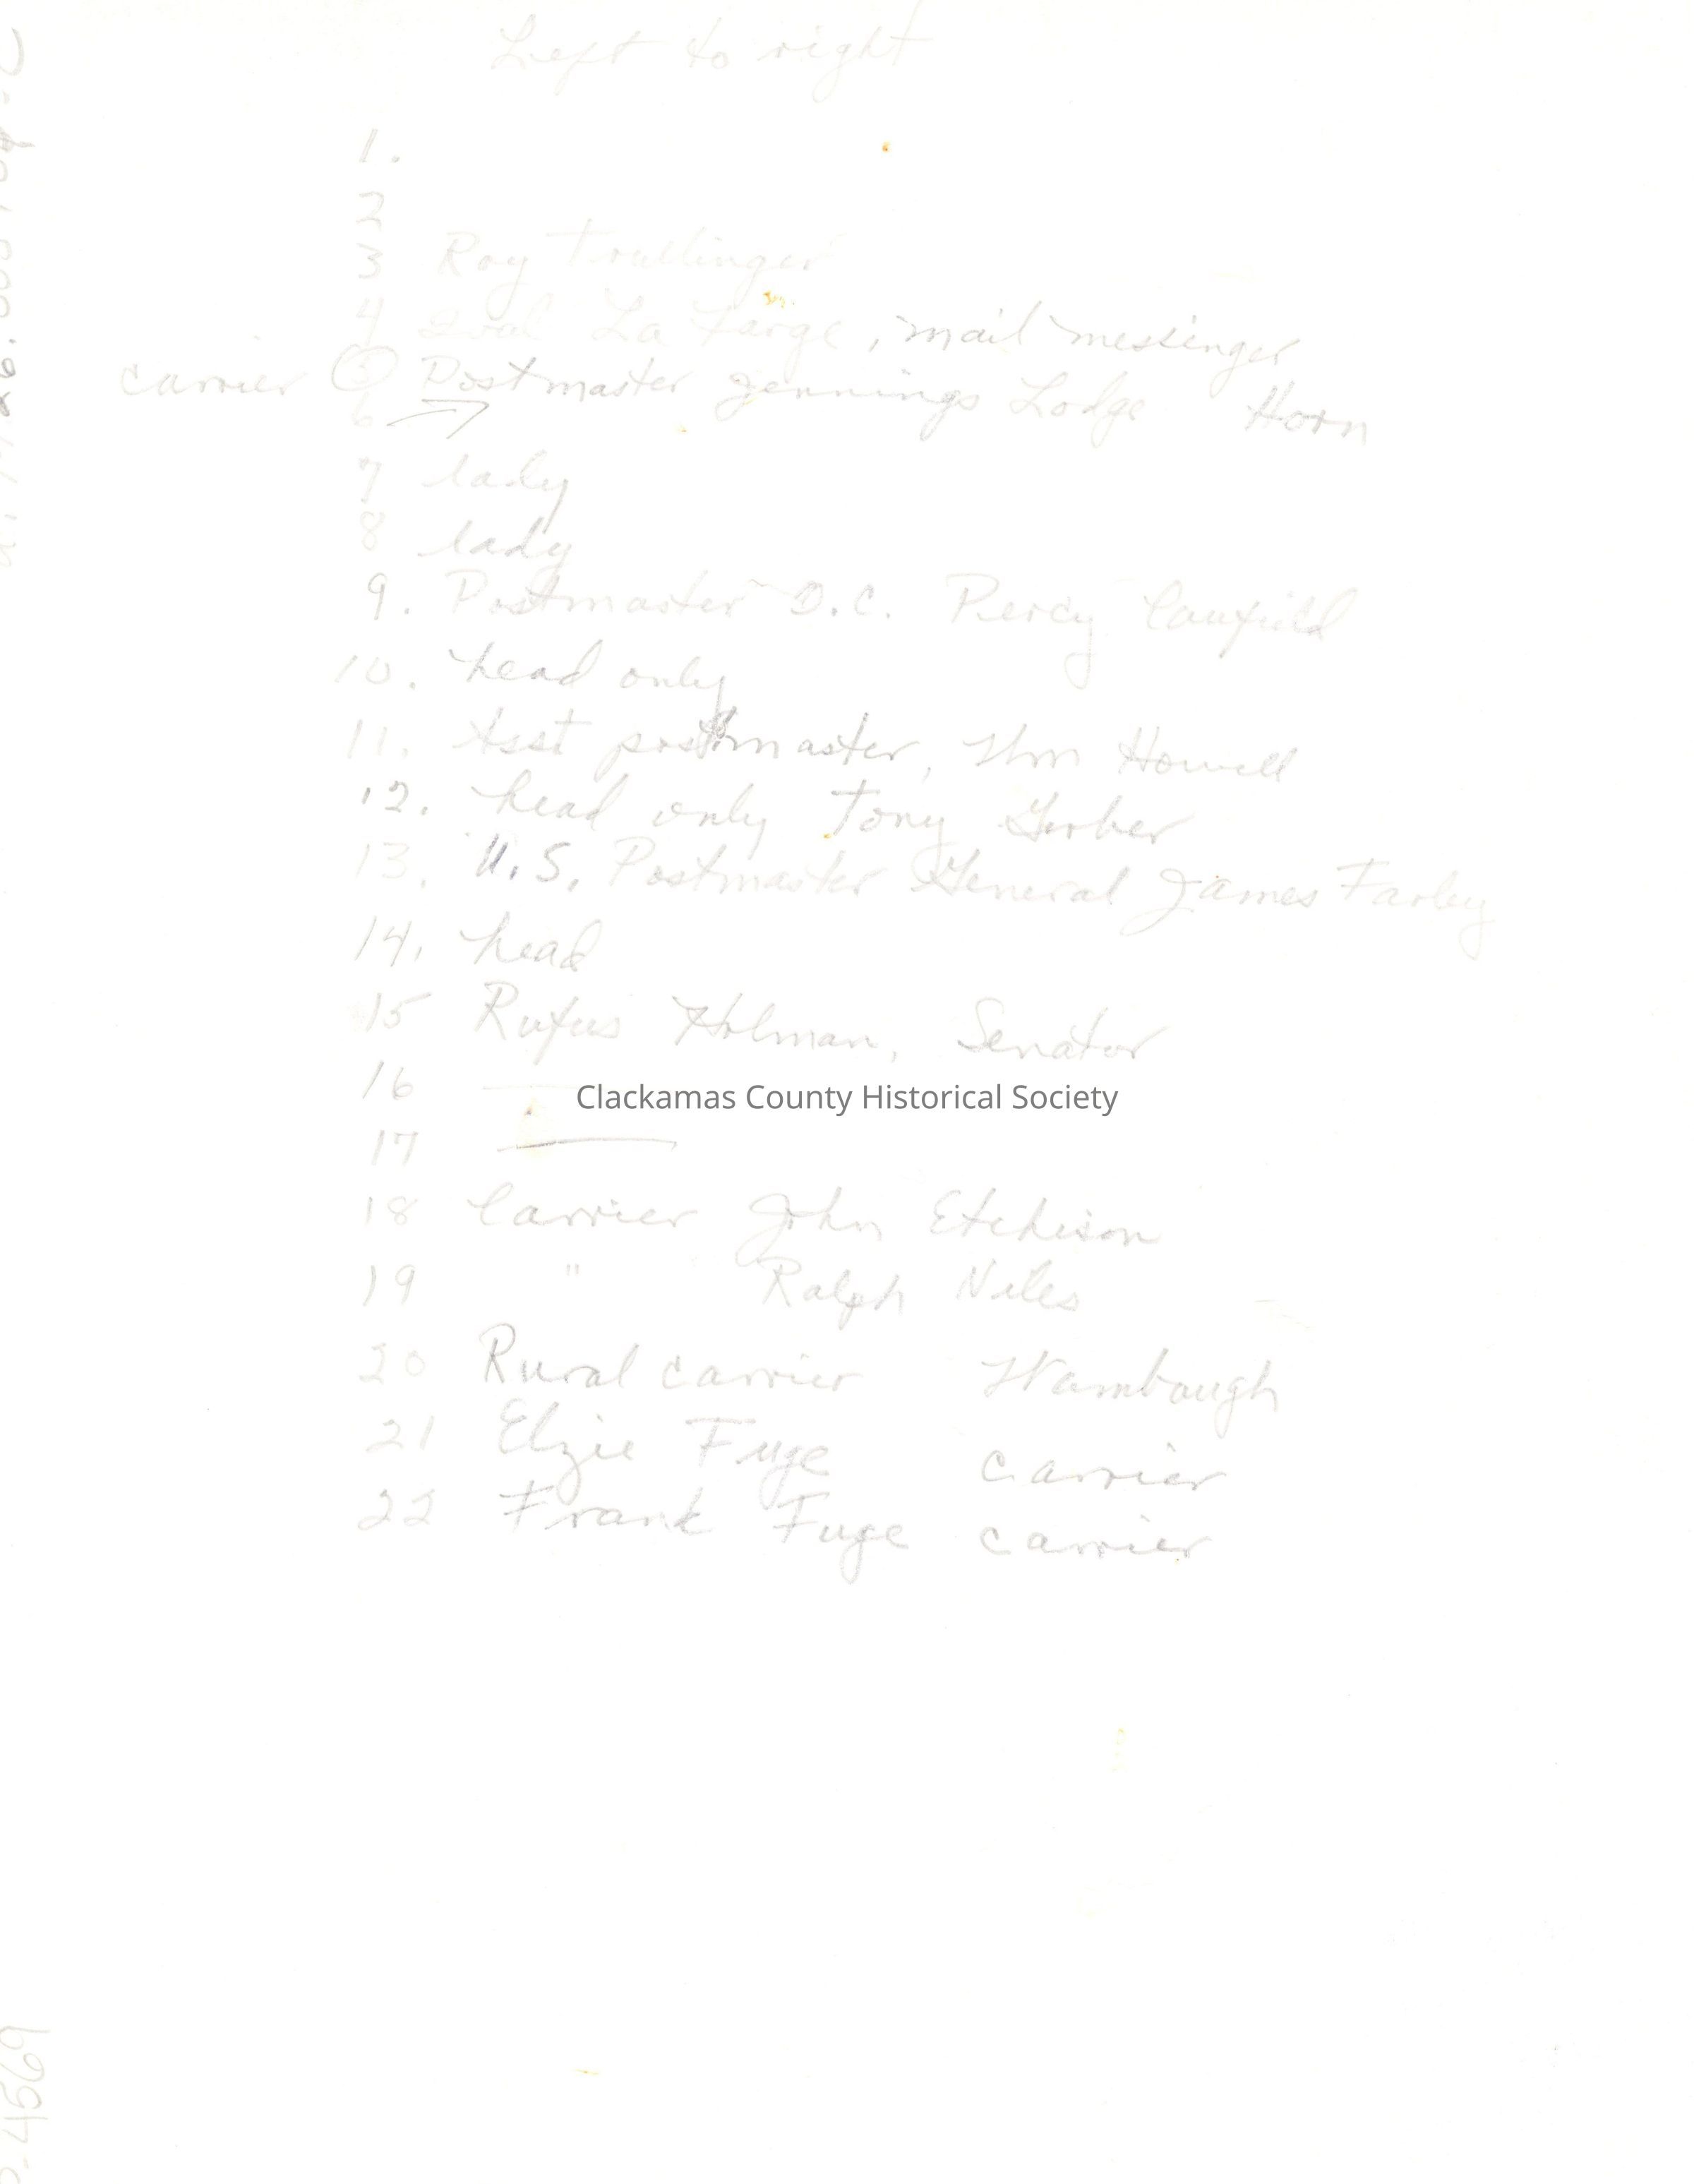 Left to right
1.
2
3 Roy Trullinger
4 La Farge, mail messenger
carrier 5 Postmaster Jennings Lodge Horn
6
7 lady
8 lady
9. Postmaster O.C. Percy Caufield
10. head only
11. Asst postmaster, Wm Howell
12. head only Tony Gerber
13. U.S. Postmaster General James Farley
14. head
15 Rufus Holman, Senator
16 —
Clackamas County Historical Society
17 —
18 Carrier John Etchison
19 " Ralph Niles
20 Rural carrier Wambaugh
21 Elzie Fuge carrier
22 Frank Fuge carrier
4569